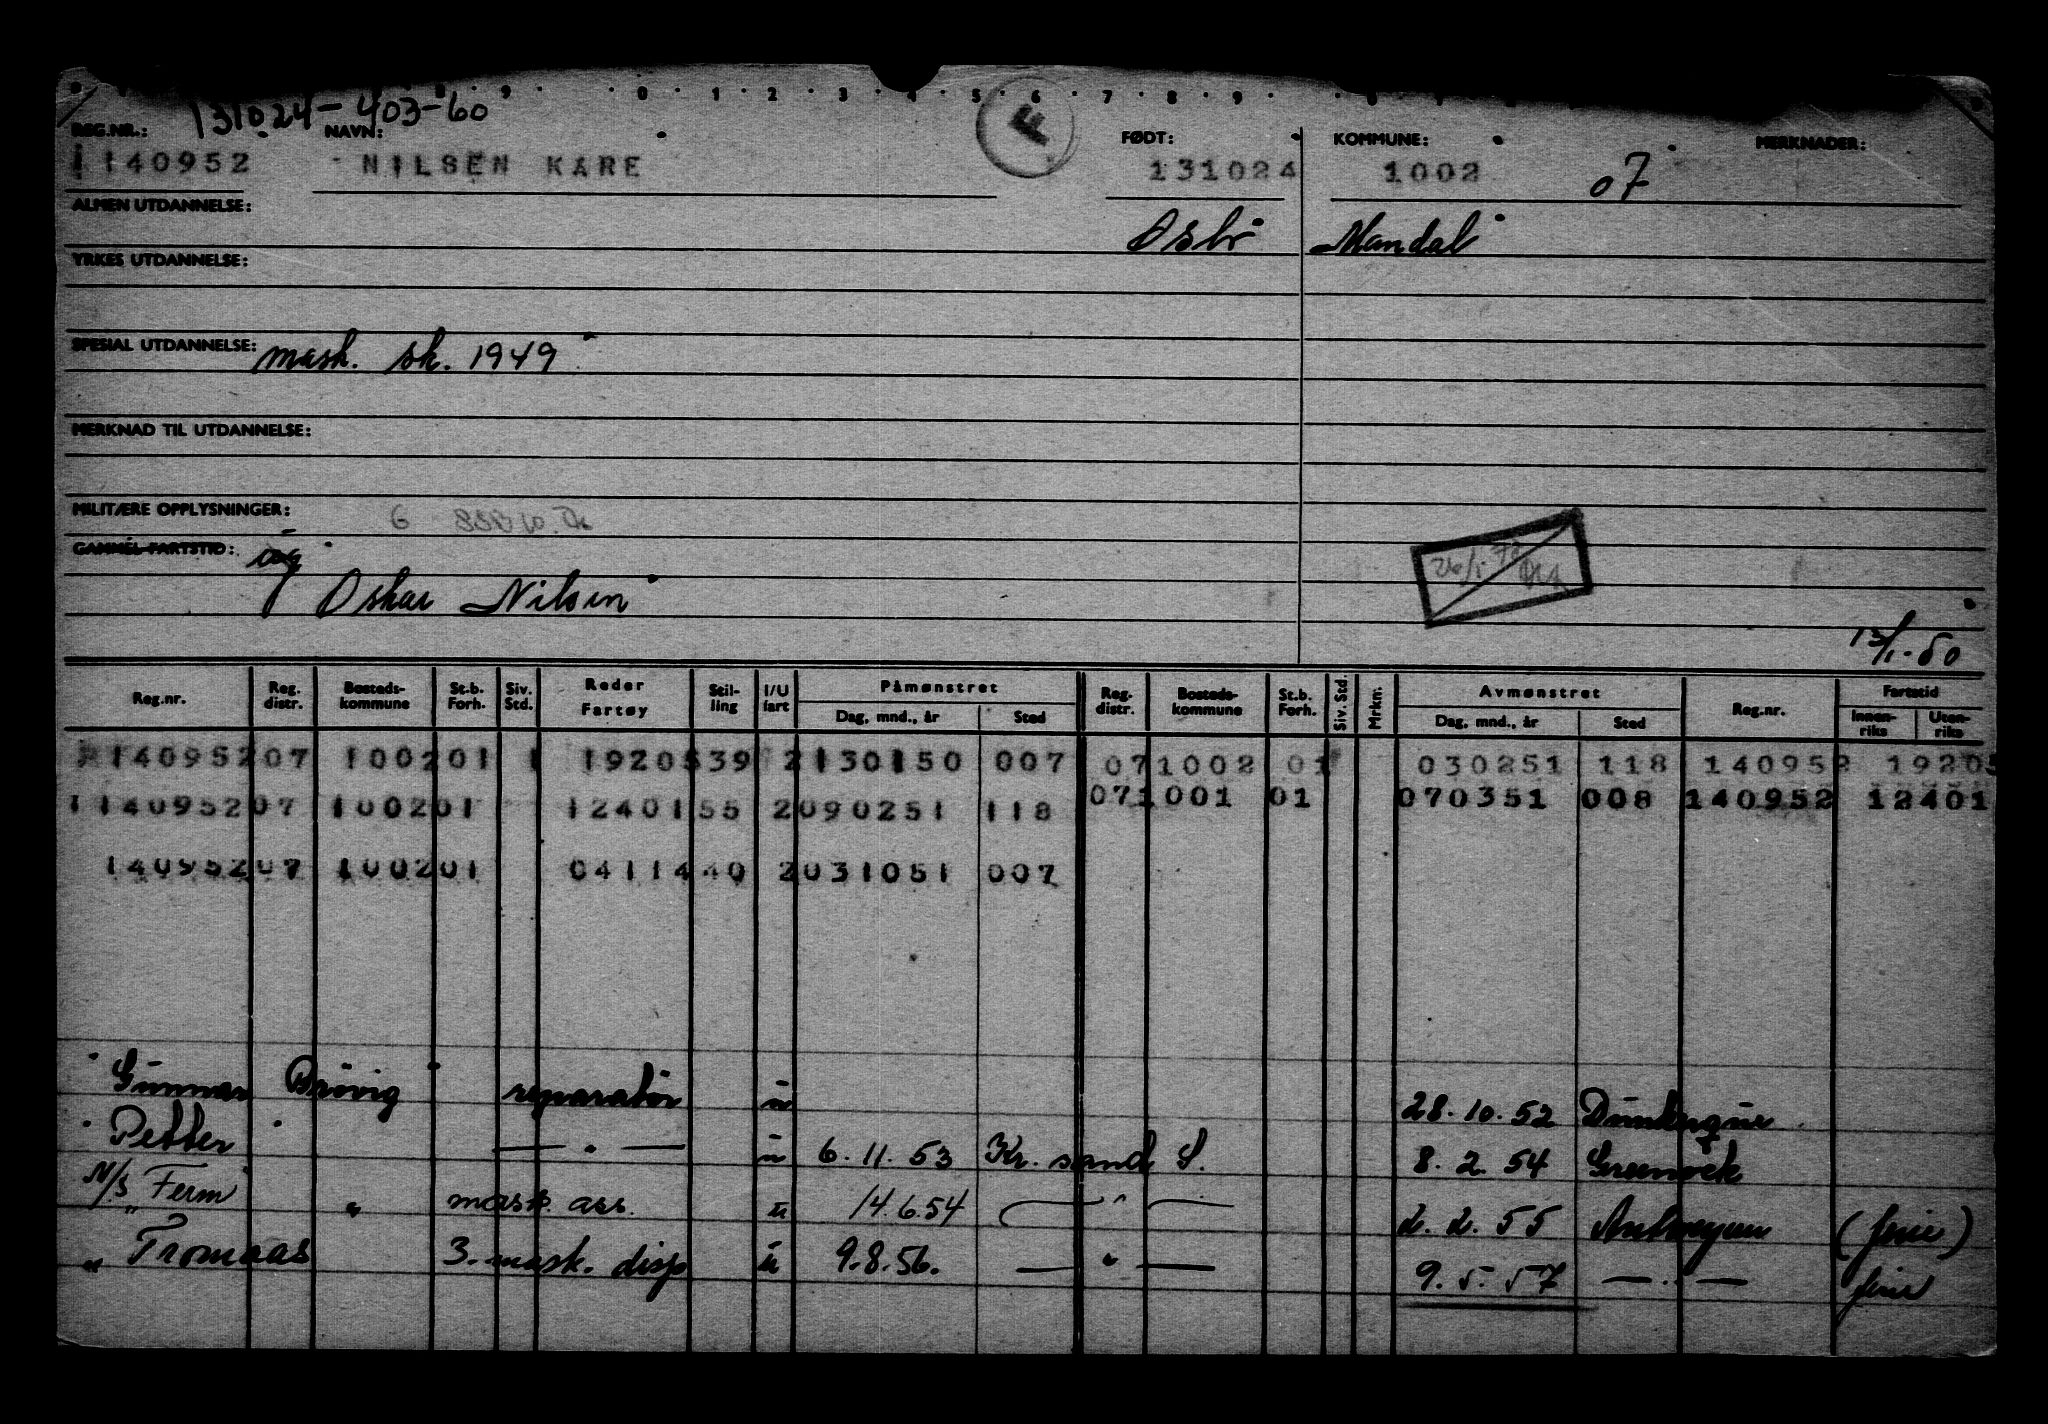 131024-403-60
8 9 0 1 2 3 4 5 6 7 8 9
F
REG.NR.: NAVN: FØDT: KOMMUNE: MERKNADER:
1140952 NILSEN KARE 131024 1002 07
ALMEN UTDANNELSE: Oslo Mandal
YRKES UTDANNELSE:
SPESIAL UTDANNELSE: mask. sk. 1949
MERKNAD TIL UTDANNELSE:
MILITÆRE OPPLYSNINGER: 6
GAMMEL FARTSTID:
Oskar Nilsen
13/1-50
Reg.nr. Reg. distr. Bosteds-kommune St.b. Forh. Siv. Std. Reder Fartøy Stil-ling I/U fart Påmønstret Dag, mnd., år Sted Reg. distr. Bosteds-kommune St.b. Forh. Siv. Std. Mrkn. Avmønstret Dag, mnd., år Sted Reg.nr. Fartstid Innen-riks Uten-riks
140952 07 1002 01 1 1920539 2 130150 007 07 1002 01 030251 118 140952 19205
1140952 07 1002 01 1240155 2 090251 118 07 1001 01 070351 008 140952 12401
140952 07 1002 01 0411440 2 031051 007
Gunnar Brøvig reparatør u 28.10.52 Dunkerque
Petter — " — u 6.11.53 Kr.sand S. 8.2.54 Greenock
M/S Ferm " mask. ass. u 14.6.54 — " — 2.2.55 Antwerpen (ferie)
" Tromaas 3. mask. disp u 9.8.56. — " — 9.5.57 — " — ferie